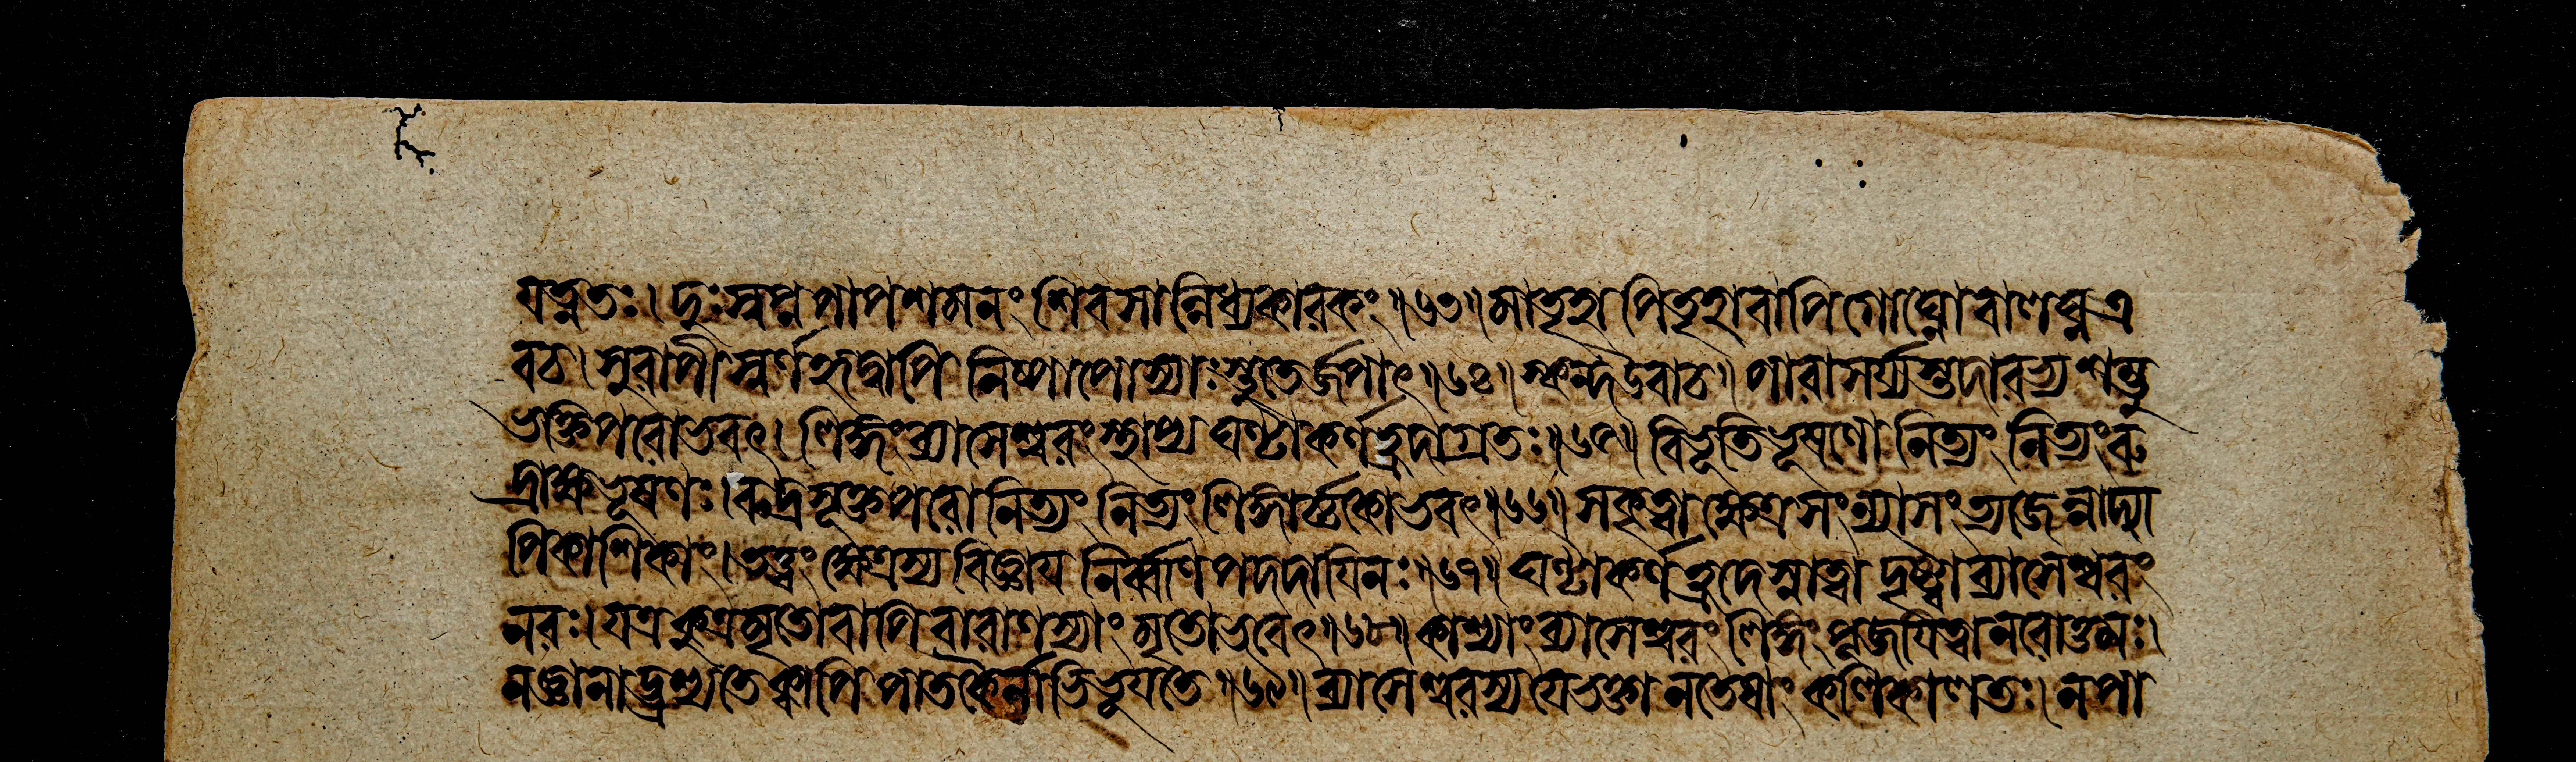 যত্নতঃ। দুঃস্বপ্নপাপশমনং শিবসান্নিধ্যকারকং॥৬৩॥ মাতৃহা পিতৃহাবাপিগোঘ্নোবালঘ্নএ
বচ। সুরাপী স্বর্ণহৃদ্বাপি নিষ্পাপোস্যাঃস্তুতের্জপাৎ॥৬৪॥ স্কন্দউবাচ॥ পারাসর্য্যস্তদারভ্য শম্ভু
ভক্তিপরোভবৎ। লিঙ্গংব্যাসেশ্বরংস্থাপ্য ঘণ্টাকর্ণহ্রদাগ্রতঃ॥৬৫॥ বিভূতিভূষণো নিত্যং নিত্যংরু
দ্রাক্ষভূষণঃ। রুদ্রসূক্তপরো নিত্যং নিত্যং লিঙ্গার্চ্চকোভবৎ॥৬৬॥ সকৃত্বাক্ষেত্রসংন্যাসং ত্যজেন্নাদ্যা
পিকাশিকাং। তত্ত্বং ক্ষেত্রস্য বিজ্ঞায় নির্ব্বাণপদদায়িনঃ॥৬৭॥ ঘণ্টাকর্ণহ্রদেস্নাত্বা দৃষ্ট্বাব্যাসেশ্বরং
নরঃ। যত্রকুত্রমৃতোবাপি বারাণস্যাং মৃতোভবেৎ॥৬৮॥ কাশ্যাং ব্যাসেশ্বরং লিঙ্গং পূজয়িত্বানরোত্তমঃ।
নজ্ঞানাদ্ভ্রশ্যতেক্বাপি পাতকৈর্নাভিভূয়তে॥৬৯॥ ব্যাসেশ্বরস্যযেভক্তানতেষাং কলিকালতঃ। নপা